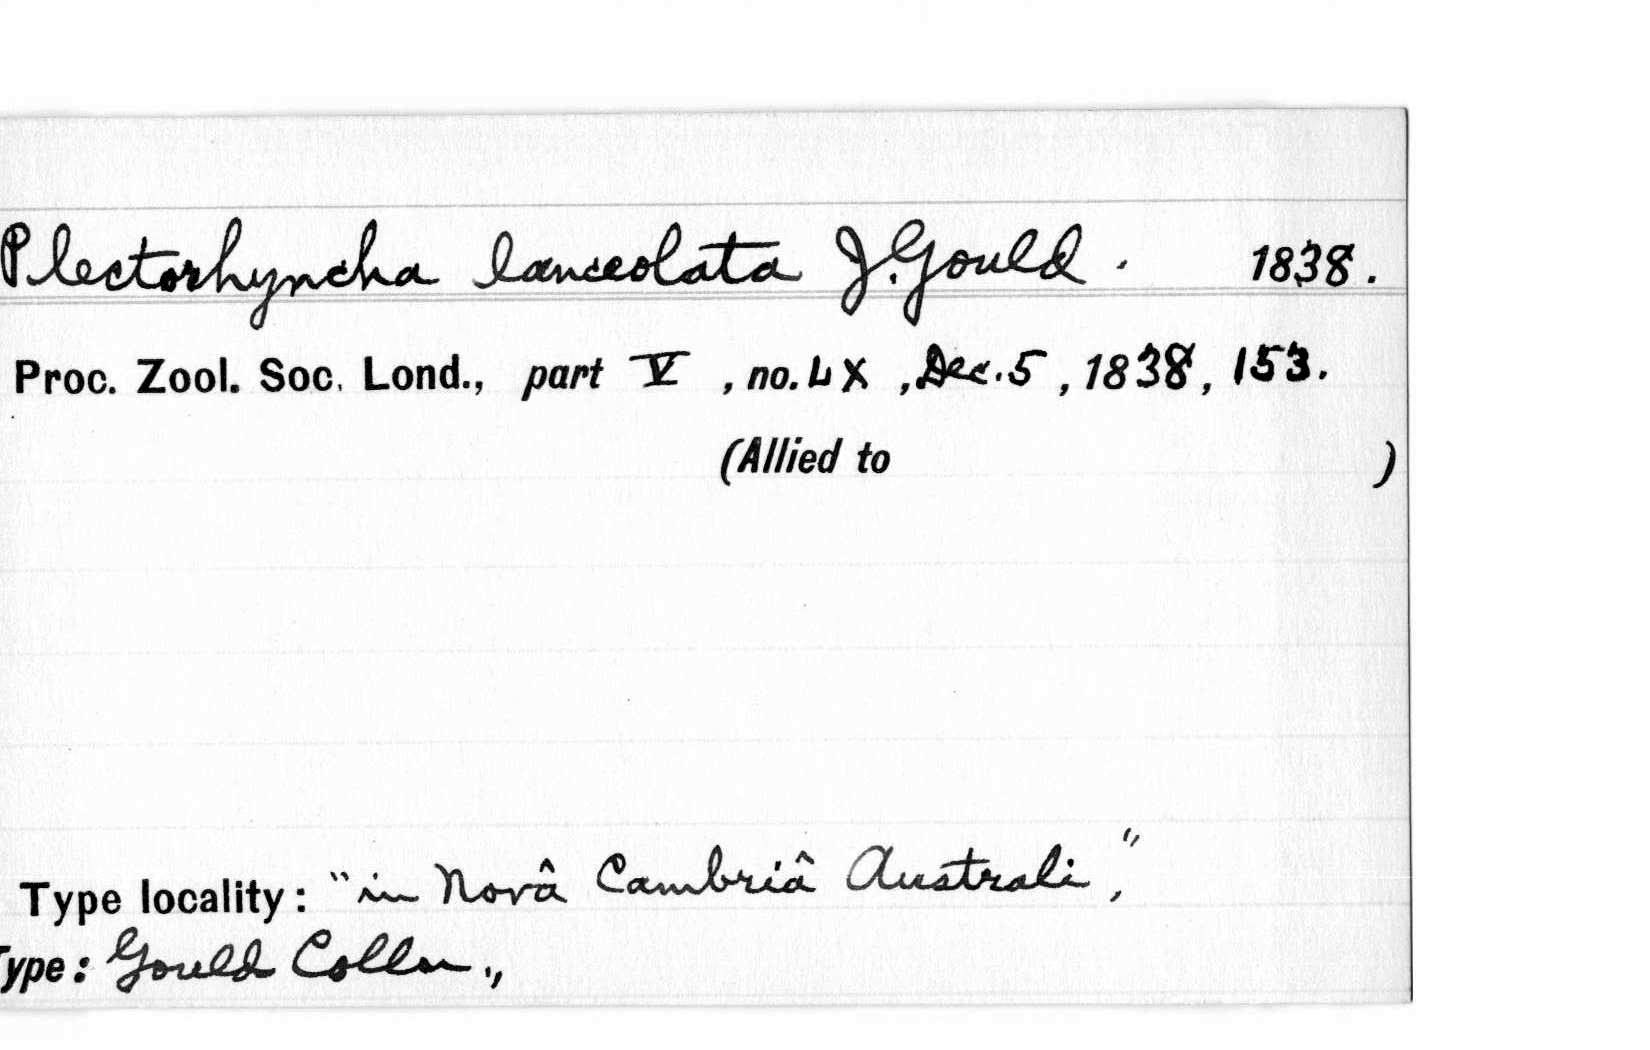 Plectorhyncha lanceolata J. Gould. 1838.
Proc. Zool. Soc. Lond., part V, no. LX, Dec. 5, 1838, 153.
(Allied to )
Type locality: "in Novâ Cambriâ Australi,"
Type: Gould Colln.,